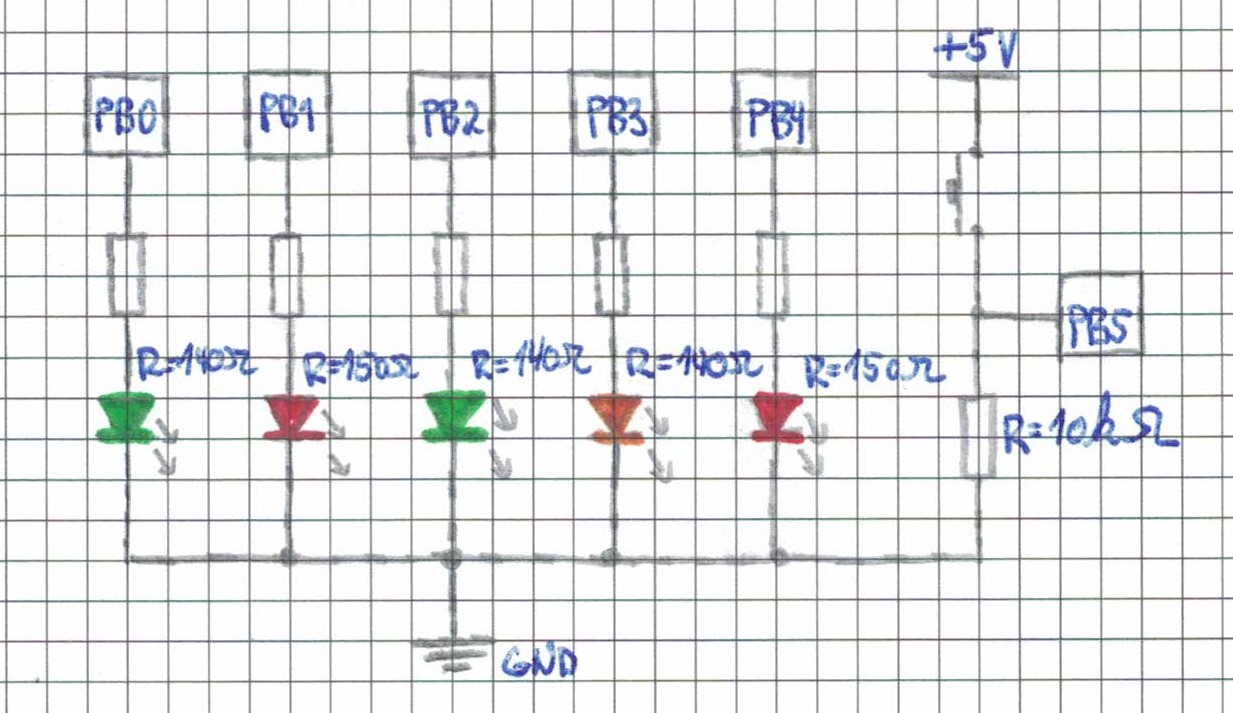 +5V
PB0 PB1 PB2 PB3 PB4
PB5
R=140Ω R=150Ω R=140Ω R=140Ω R=150Ω
R=10kΩ
GND